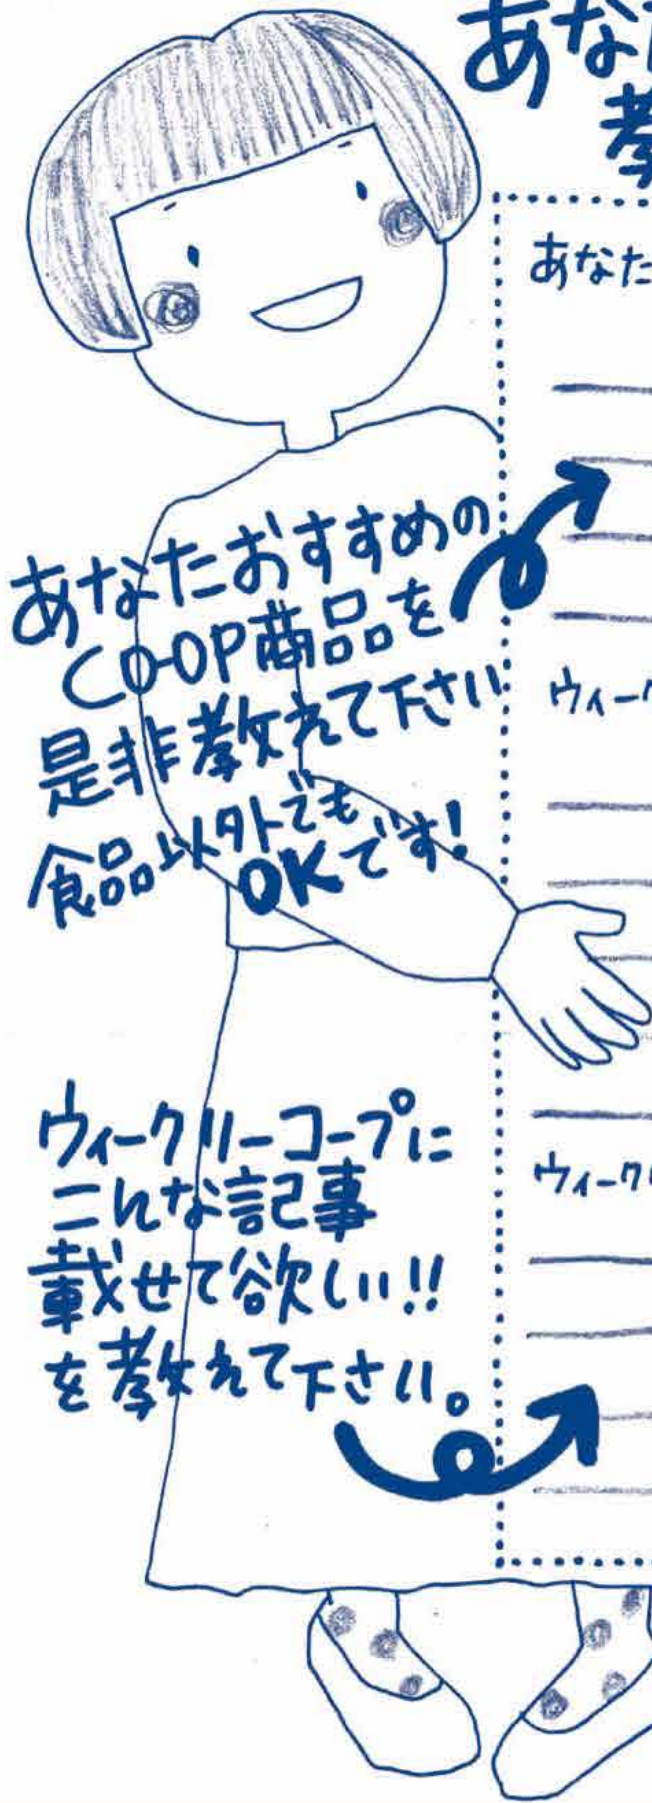 あな
教
あなた
あなたおすすめの
CO-OP商品を
是非教えて下さい
食品以外でも
OKです!
ウィーク
ウィークリーコープに
こんな記事
載せて欲しい!!
を教えて下さい。
ウィークリ